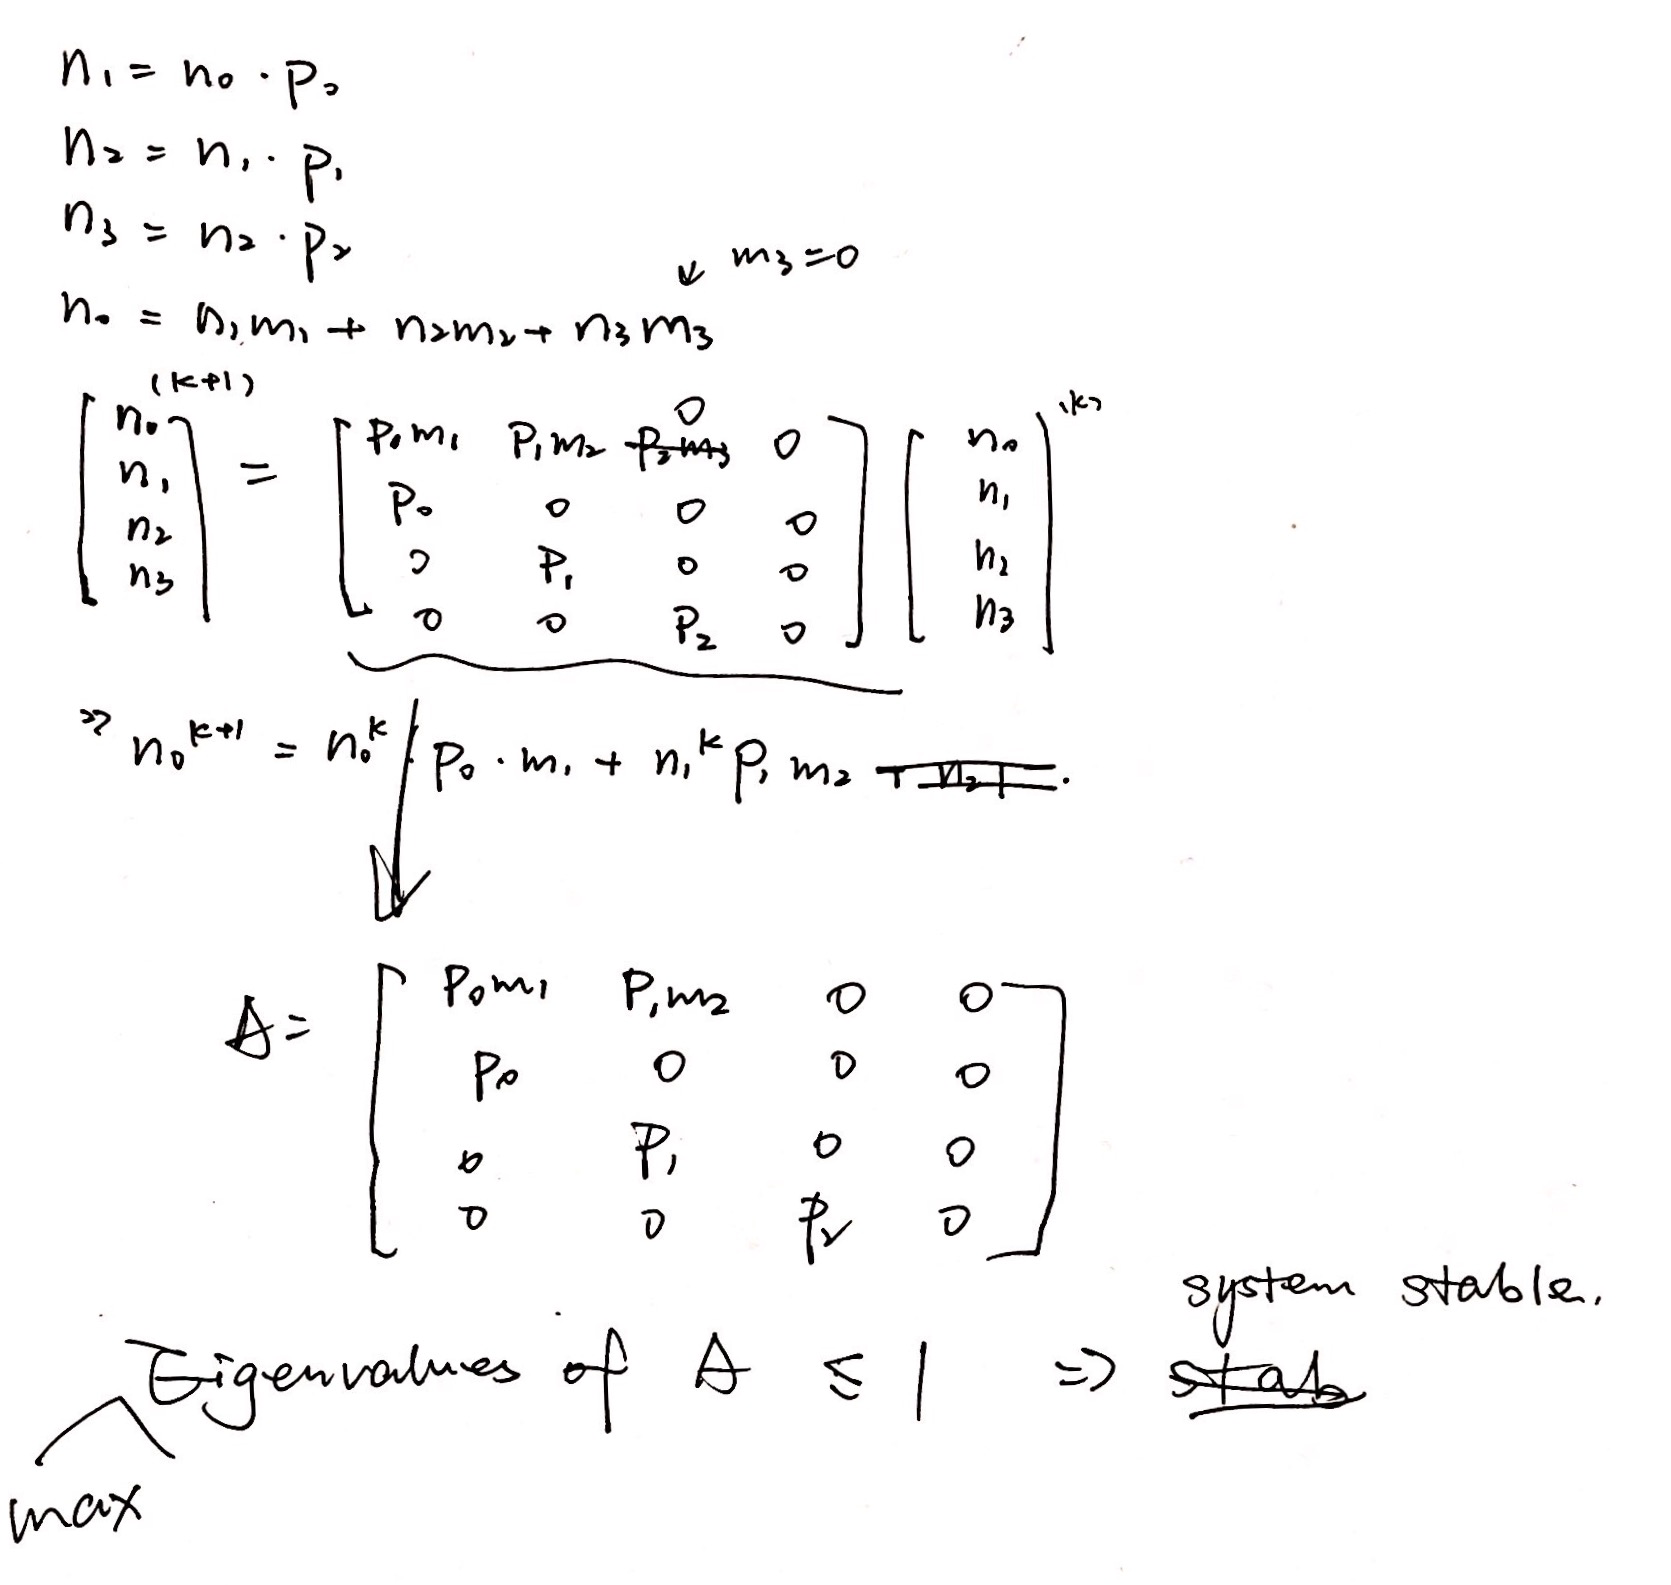 n₁ = n₀ · p₀
n₂ = n₁ · p₁
n₃ = n₂ · p₂
↙ m₃ = 0
n₀ = n₁m₁ + n₂m₂ + n₃m₃
[n₀ n₁ n₂ n₃]^(k+1) = [p₀m₁ p₁m₂ ~~p₂m₃~~ 0 0
p₀ 0 0 0
0 p₁ 0 0
0 0 p₂ 0] [n₀ n₁ n₂ n₃]^(k)
n₀^k+1 = n₀^k · p₀ · m₁ + n₁^k p₁ m₂ ~~+ n₂~~ .
A = [p₀m₁ p₁m₂ 0 0
p₀ 0 0 0
0 p₁ 0 0
0 0 p₂ 0]
system stable.
Eigenvalues of A ≤ 1 ⇒ ~~stab~~
max